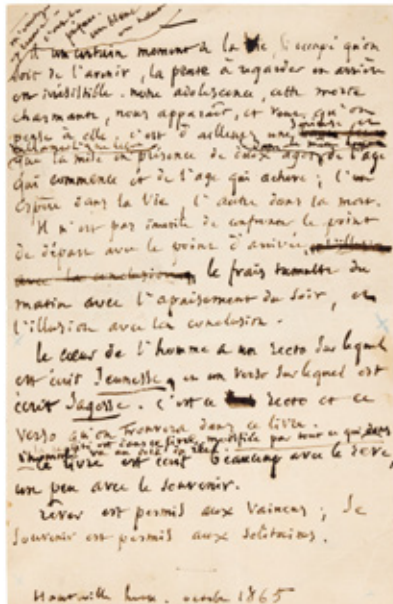 préface
un blanc
À un certain moment de la vie, si occupé qu'on
soit de l'avenir, la pente à regarder en arrière
est irrésistible. notre adolescence, cette morte
charmante, nous apparaît, et veut qu'on
pense à elle. c'est d'ailleurs une
que la mise en présence de deux âges, de l'âge
qui commence et de l'âge qui achève ; l'un
espère dans la vie l'autre dans la mort.
Il n'est pas inutile de confronter le point
de départ avec le point d'arrivée,
avec la conclusion, le frais tumulte du
matin avec l'apaisement du soir, et
l'illusion avec la conclusion.
Le cœur de l'homme a un recto sur lequel
est écrit Jeunesse, et un verso sur lequel est
écrit Sagesse. C'est ce recto et ce
verso qu'on trouvera dans ce livre.
est dans ce livre, modifié par tout ce qui dans
Ce livre est écrit beaucoup avec le rêve,
un peu avec le souvenir.
Rêver est permis aux vaincus ; se
souvenir est permis aux solitaires.
Hauteville house. octobre 1865